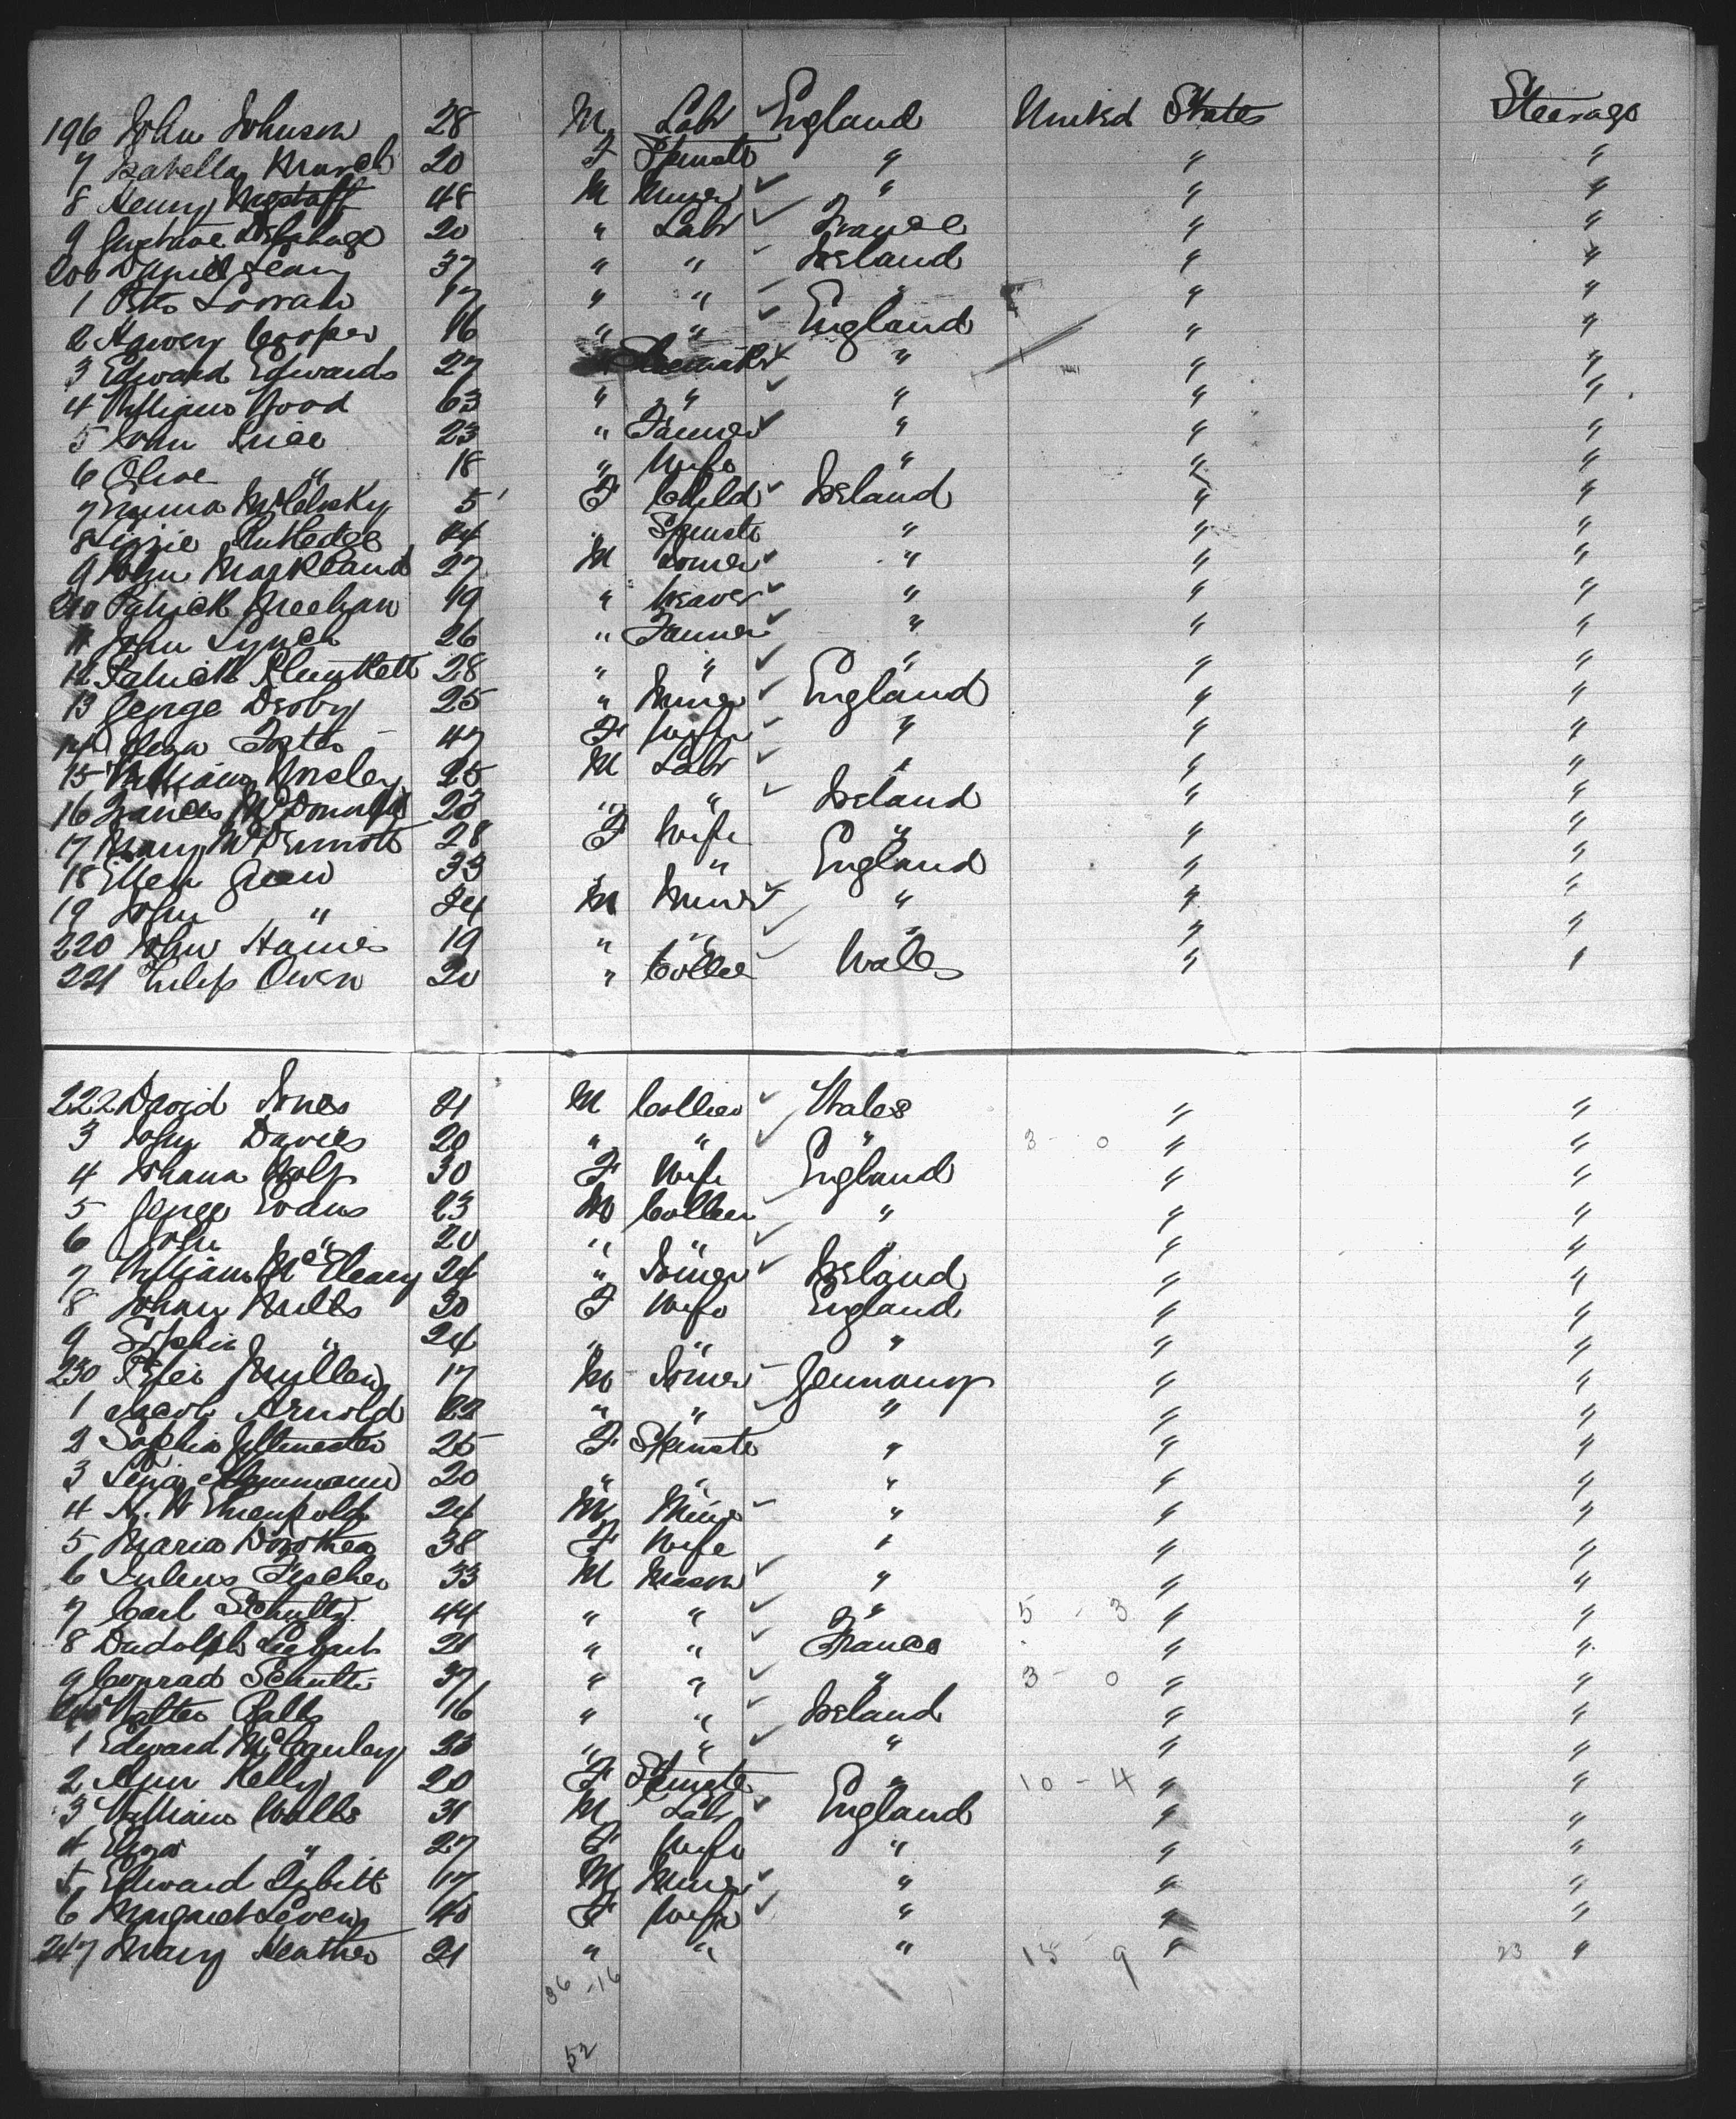 196 John Johnson 28 M Labr England United States Steerage
7 Isabella March 20 F Spinstr " " "
8 Henry Wagstaff 48 M Miner " " "
9 Gustave 20 " Labr France " "
200 Daniel Leary 37 " " Ireland " "
1 17 " " " " "
2 Harvey Cooper 16 " " England " "
3 Edward Edwards 27 " Shoemaker " " "
4 William Wood 63 " " " " "
5 John Price 23 " Farmer " " "
6 Olive " 18 " Wife " " "
7 Emma 5 F Child Ireland " "
8 Lizzie Rutledge 24 " Spinstr " " "
9 John Markland 27 M Joiner " " "
210 Patrick Greehan 19 " Weaver " " "
11 John Lynch 26 " Farmer " " "
12 Patrick Plunkett 28 " " " " "
13 George Derby 25 " Miner England " "
14 47 F Wife " " "
15 William 25 M Labr " " "
16 Frances McDonnell " " Ireland " "
17 Mary McDermott 28 F Wife " " "
18 Ellen Green 33 " " England " "
19 John " M Miner " " "
220 John Haines 19 " " " " "
221 Philip Owen 20 " Collier Wales " "
222 David Jones 21 M Collier Wales " "
3 John Davies 20 " " " 3 - 0 " "
4 Johana 30 F Wife England " "
5 George Evans 23 M Collier " " "
6 John " 20 " " " " "
7 William McCleary 24 " Joiner Ireland " "
8 Mills 30 F Wife England " "
9 Sophia " 24 " " " " "
230 Peter Mullen 17 M Joiner Germany " "
1 Jacob Arnold 22 " " " " "
2 Sophia 25 F Spinstr " " "
3 Lena 20 " " " " "
4 24 M Miner " " "
5 Maria Dorothea 38 F Wife " " "
6 Julius Fischer 33 M Mason " " "
7 Carl Schultz 44 " " " 5 - 3 " "
8 21 " " France " "
9 Conrad Schultz 37 " " " 3 - 0 " "
240 Walter 16 " " Ireland " "
1 Edward McCauley 20 " " " " "
2 Ann Kelly 20 F Spinstr " 10 - 4 " "
3 William Walls 31 M Labr England " "
4 Eliza " 27 F Wife " " "
5 Edward 17 M Miner " " "
6 Margaret 40 F Wife " " "
247 Mary Heather 21 " " " 15 9 " 23 "
36 - 16
52